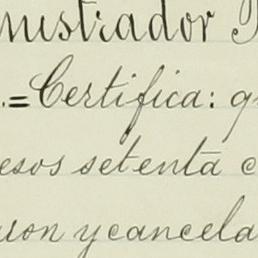 nistrador
.=Certifica: q
esos setenta c
ron y cancela